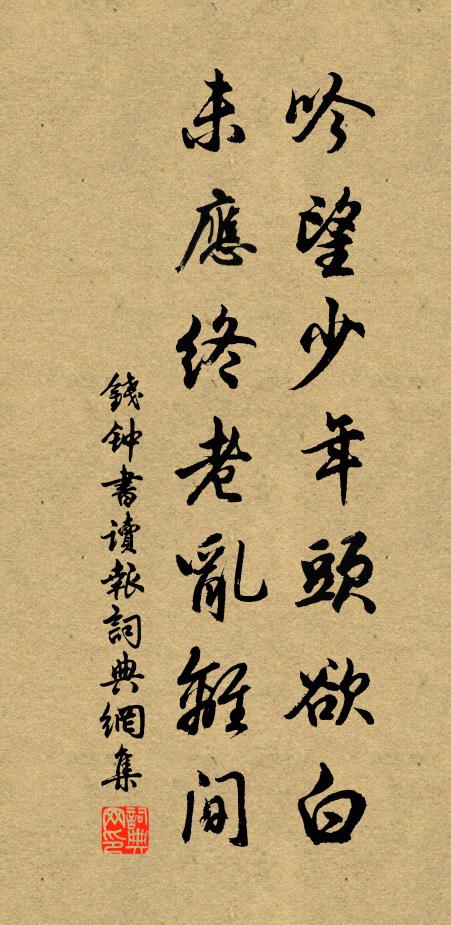 吟望少年頭欲白
未應終老亂離間
錢钟書讀報詞典網集
詞典網印